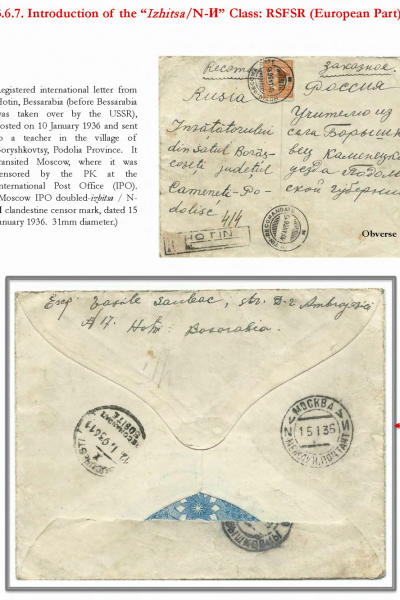 .6.7. Introduction of the “Izhitsa/N-И” Class: RSFSR (European Part)
Registered international letter from
Hotin, Bessarabia (before Bessarabia
was taken over by the USSR),
posted on 10 January 1936 and sent
to a teacher in the village of
Boryshkovtsy, Podolia Province. It
transited Moscow, where it was
censored by the PK at the
International Post Office (IPO).
(Moscow IPO doubled-izhitsa / N-
И clandestine censor mark, dated 15
January 1936. 31mm diameter.)
Заказное.
Rusia
Россия
Учителю из
села Борышко
вец Каменецка
уезда Подоль
ской губернии
Învăţătorului
din satul Borăs-
coseţi judeţul
Cameneţi-Po-
dolisc
4/4
HOTIN
Obverse
Hotin Basarabia.
МОСКВА
15 1 36